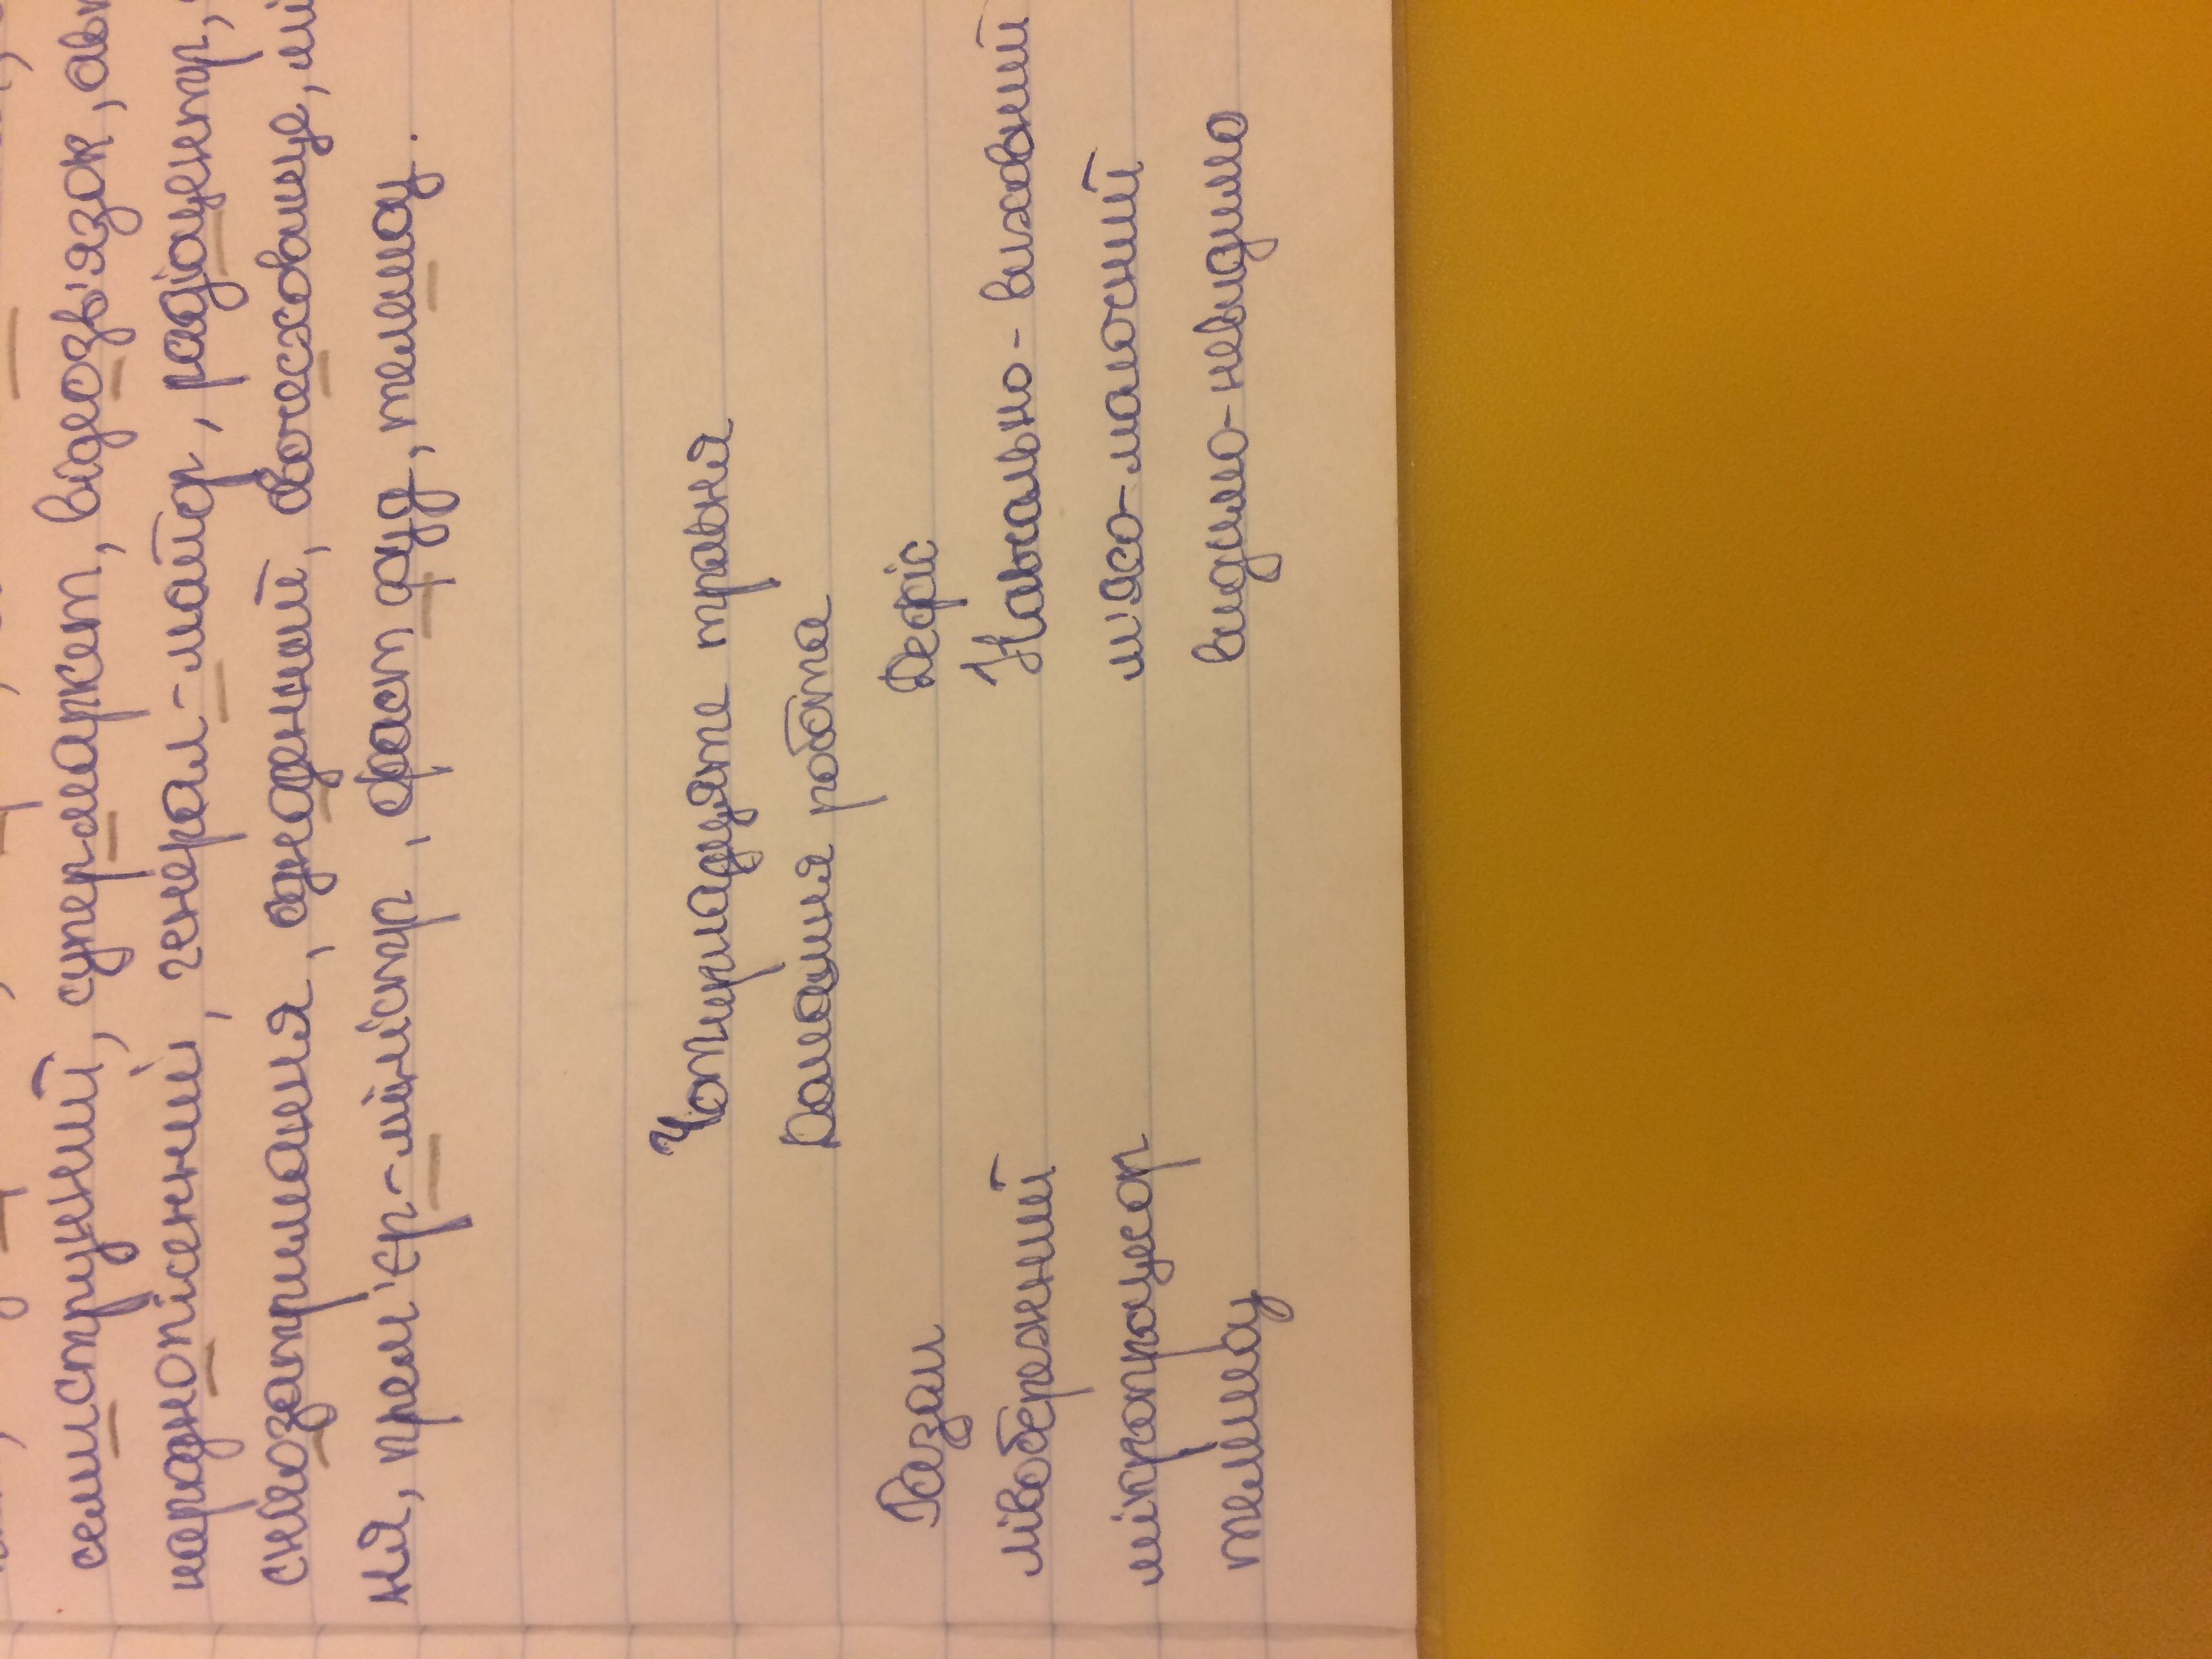 семиструнний, супермаркет, відеозв'язок,
народнопісенний, генерал-майор, радіоцентр,
снігозатримання, одноденний, овочесховище,
ня, прем'єр-міністр, фаст фуд, телешоу.
Чотирнадцяте травня
Домашня робота
Разом Дефіс
лівобережний Навчально-виховний
мікропроцесор м'ясо-молочний
телешоу видимо-невидимо